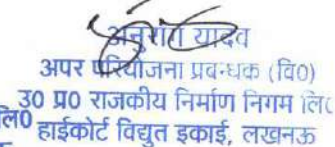 अनुराग यादव
अपर परियोजना प्रबन्धक (वि0)
उ0 प्र0 राजकीय निर्माण निगम लि0
लि0 हाईकोर्ट विद्युत इकाई, लखनऊ